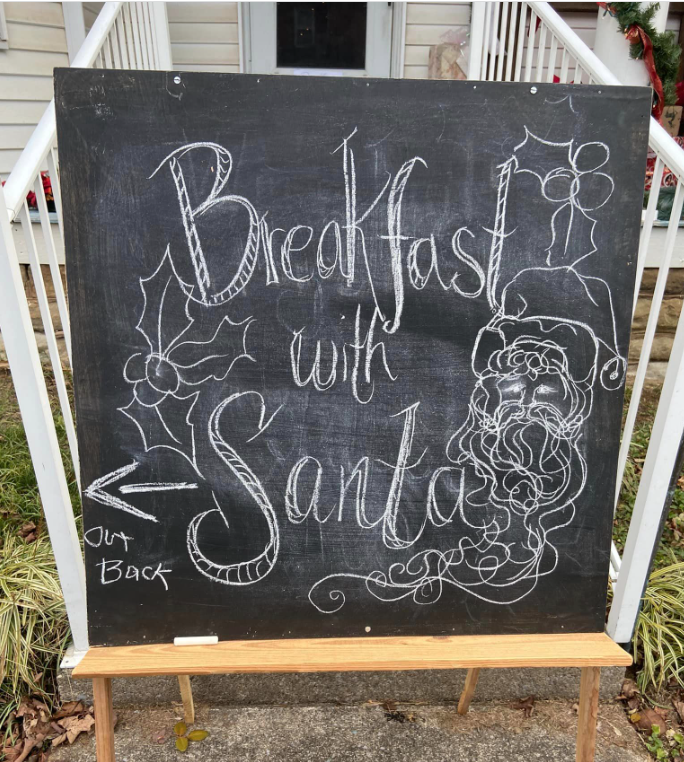 Breakfast
with
Santa
Out
Back